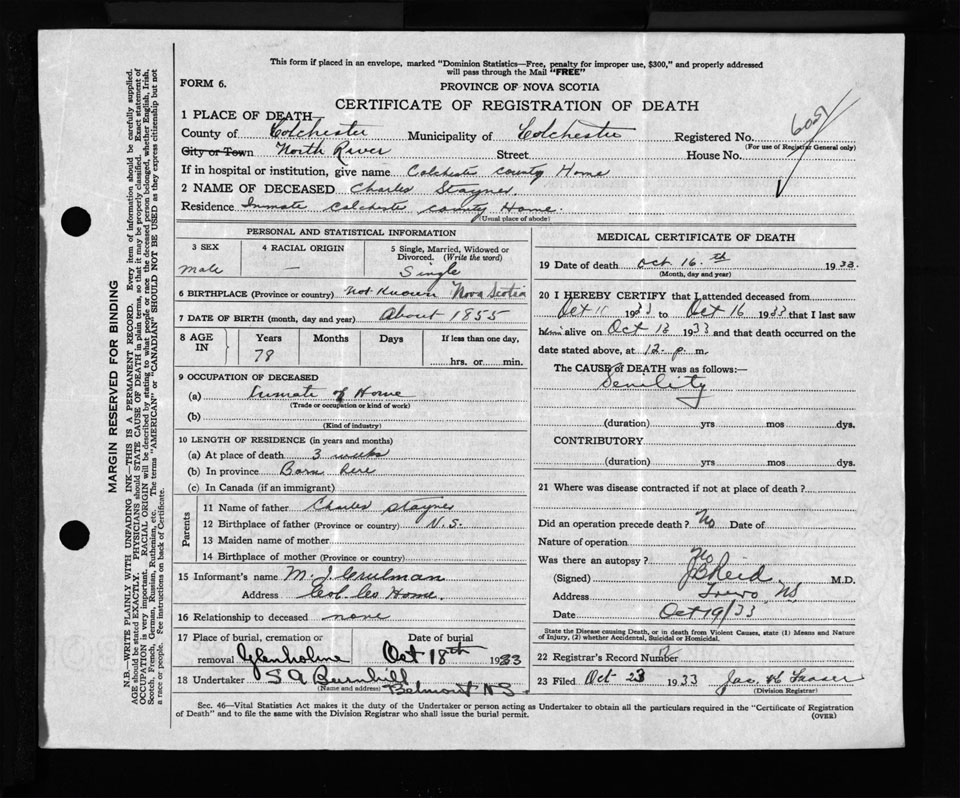 This form if placed in an envelope, marked "Dominion Statistics—Free, penalty for improper use, $300," and properly addressed
will pass through the Mail "FREE"
FORM 6.
PROVINCE OF NOVA SCOTIA
CERTIFICATE OF REGISTRATION OF DEATH
1 PLACE OF DEATH
County of Colchester Municipality of Colchester Registered No.
(For use of Registrar General only)
City or Town North River Street House No.
If in hospital or institution, give name Colchester County Home
2 NAME OF DECEASED Charles Stayner
Residence Inmate Colchester County Home.
(Usual place of abode)
PERSONAL AND STATISTICAL INFORMATION
3 SEX 4 RACIAL ORIGIN 5 Single, Married, Widowed or
Divorced. (Write the word)
Male — Single
6 BIRTHPLACE (Province or country) Not Known Nova Scotia
7 DATE OF BIRTH (month, day and year) About 1855
8 AGE IN Years Months Days If less than one day,
78 hrs. or min.
9 OCCUPATION OF DECEASED
(a) Inmate of Home
(Trade or occupation or kind of work)
(b)
(Kind of industry)
10 LENGTH OF RESIDENCE (in years and months)
(a) At place of death 3 weeks
(b) In province Born here
(c) In Canada (if an immigrant)
Parents
11 Name of father Charles Stayner
12 Birthplace of father (Province or country) N.S.
13 Maiden name of mother
14 Birthplace of mother (Province or country)
15 Informant's name M. J.
Address Col. Co Home.
16 Relationship to deceased none
17 Place of burial, cremation or Date of burial
removal Glenholme Oct 18th 1933
18 Undertaker S A Burnhill
(Name and address) Belmont N S
MEDICAL CERTIFICATE OF DEATH
19 Date of death Oct 16.th 1933.
(Month, day and year)
20 I HEREBY CERTIFY that I attended deceased from
Oct 11 1933 to Oct 16 1933 that I last saw
him alive on Oct 13 1933 and that death occurred on the
date stated above, at 12 p.m.
The CAUSE of DEATH was as follows:—
Senility
(duration) yrs mos dys.
CONTRIBUTORY
(duration) yrs mos dys.
21 Where was disease contracted if not at place of death?
Did an operation precede death? No Date of
Nature of operation
Was there an autopsy? No
(Signed) J B Reid M.D.
Address Truro NS
Date Oct 19/33
State the Disease causing Death, or in death from Violent Causes, state (1) Means and Nature
of Injury, (2) whether Accidental, Suicidal or Homicidal.
22 Registrar's Record Number
23 Filed Oct 23 1933 Jas. H Fraser
(Division Registrar)
Sec. 46—Vital Statistics Act makes it the duty of the Undertaker or person acting as Undertaker to obtain all the particulars required in the "Certificate of Registration
of Death" and to file the same with the Division Registrar who shall issue the burial permit.
(OVER)
MARGIN RESERVED FOR BINDING
N.B.—WRITE PLAINLY WITH UNFADING INK—THIS IS A PERMANENT RECORD. Every item of information should be carefully supplied.
AGE should be stated EXACTLY. PHYSICIANS should STATE CAUSE OF DEATH in plain terms, so that it may be properly classified. Exact statement of
OCCUPATION is very important. RACIAL ORIGIN will be described by stating to what people or race the deceased person belonged, whether English, Irish,
Scotch, French, German, Russian, Ruthenian, etc. The terms "AMERICAN" or "CANADIAN" SHOULD NOT BE USED as they express citizenship but not
a race or people. See instructions on back of Certificate.